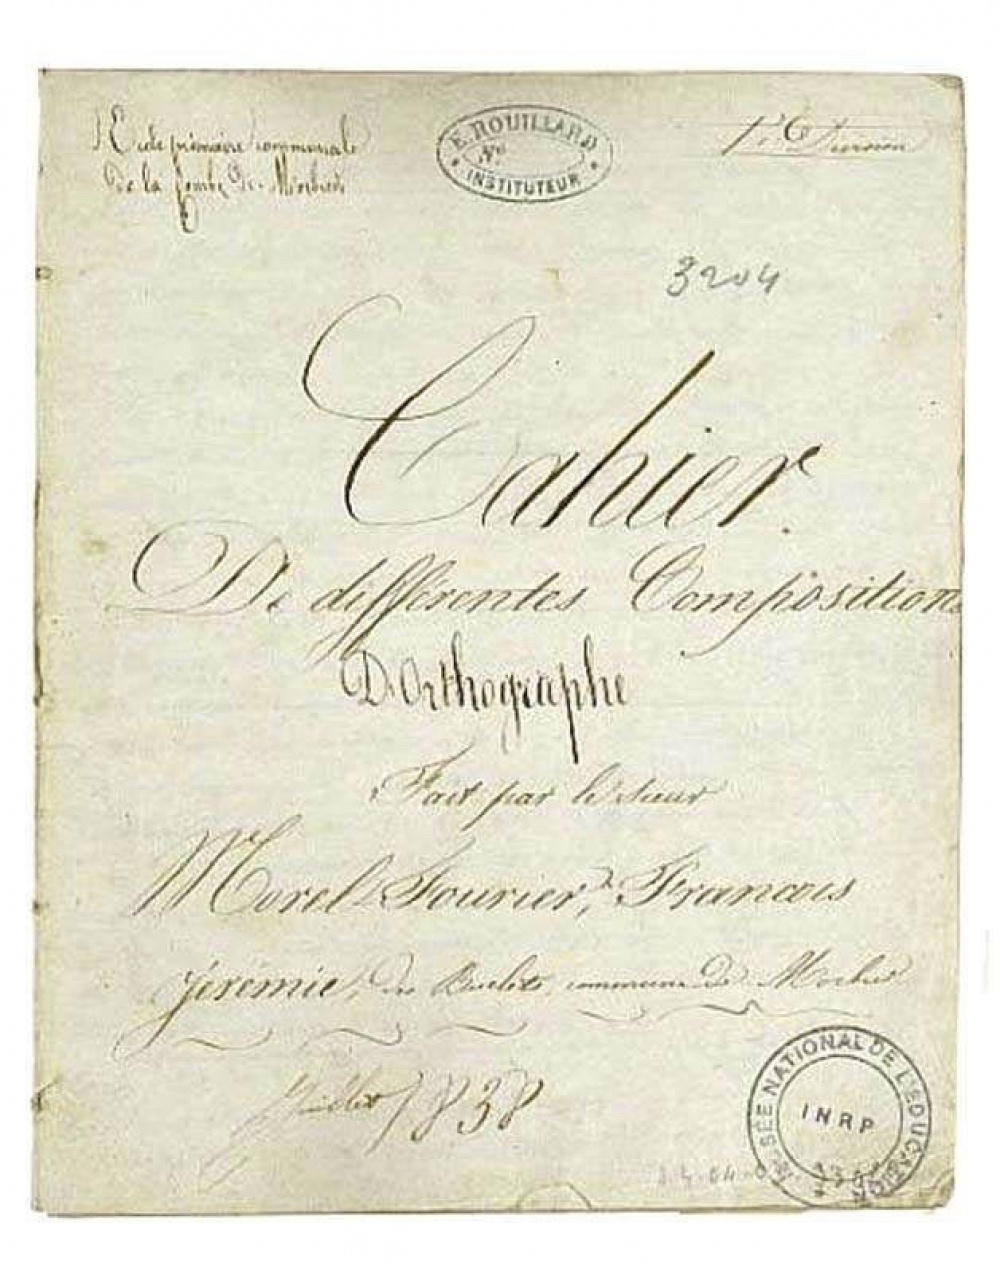 Ecole primaire communale
de la Combe de Morbier
E. ROUILLARD
No
INSTITUTEUR
1re Division
3204
Cahier
De différentes Compositions
D'Orthographe
Fait par le sieur
Morel Fourier, Francois
Jérémie, des Buclets, commune de Morbier
Juillet 1838
MUSÉE NATIONAL DE L'ÉDUCATION
INRP